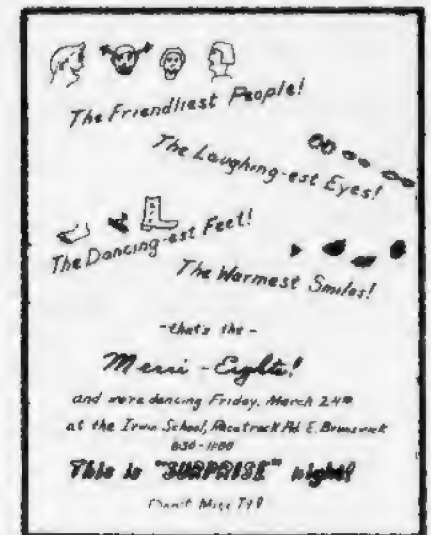 The Friendliest People!
The Laughing-est Eyes!
The Dancing-est Feet!
The Warmest Smiles!
- that's the -
Merri - Eights!
and we're dancing Friday, March 24th
at the Irwin School, Racetrack Rd. E. Brunswick
830 - 1100
This is "SURPRISE" night!
Don't Miss It!